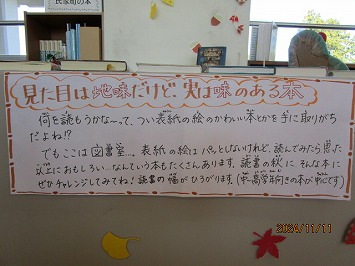 民家町の本
見た目は地味だけど実は味のある本
何を読もうかな〜って、つい表紙の絵のかわいい本とかを手に取りがち
だよね!?
でもここは図書室…。表紙の絵はパッとしないけれど、読んでみたら思った
以上におもしろい…なんていう本もたくさんあります。読書の秋に、そんな本に
ぜひチャレンジしてみてね!読書の幅がひろがります。(中、高学年向きの本が中心です)
2024/11/11